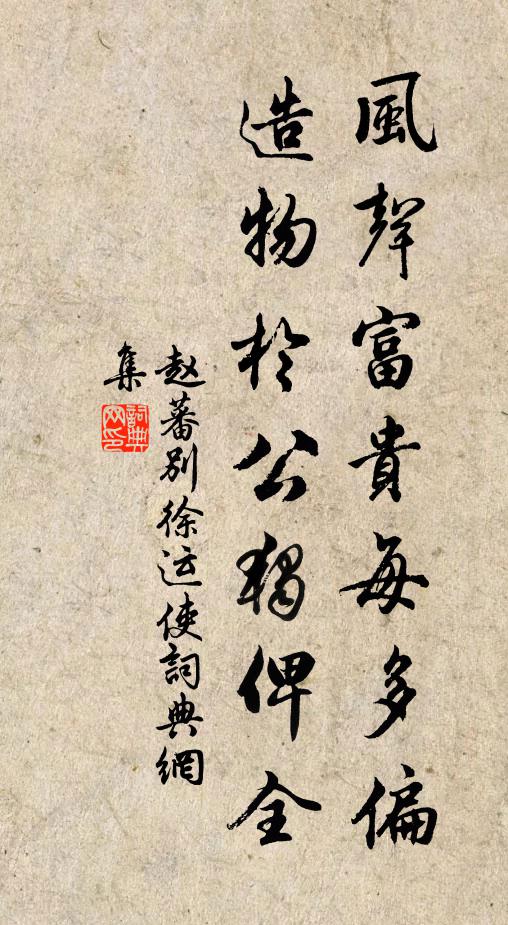 風聲富貴每多偏
造物於公獨俾全
赵蕃别徐运使詞典網
集
詞典
网印